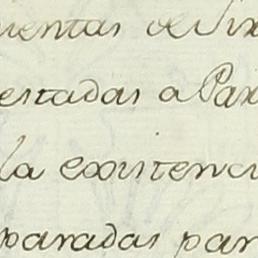 uentas de Six
estadas a Pax
la existenci
paradas par